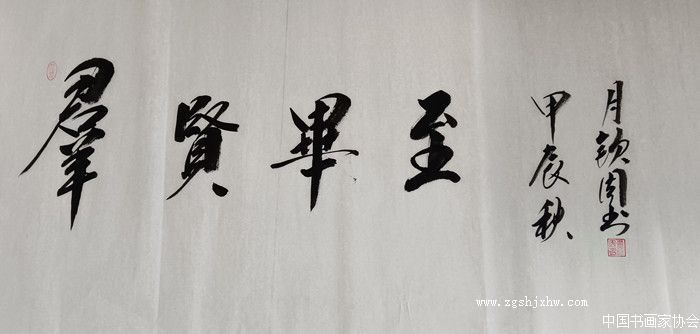 羣賢畢至
甲辰秋
月欽周书
www.zgshjxhw.com
中国书画家协会